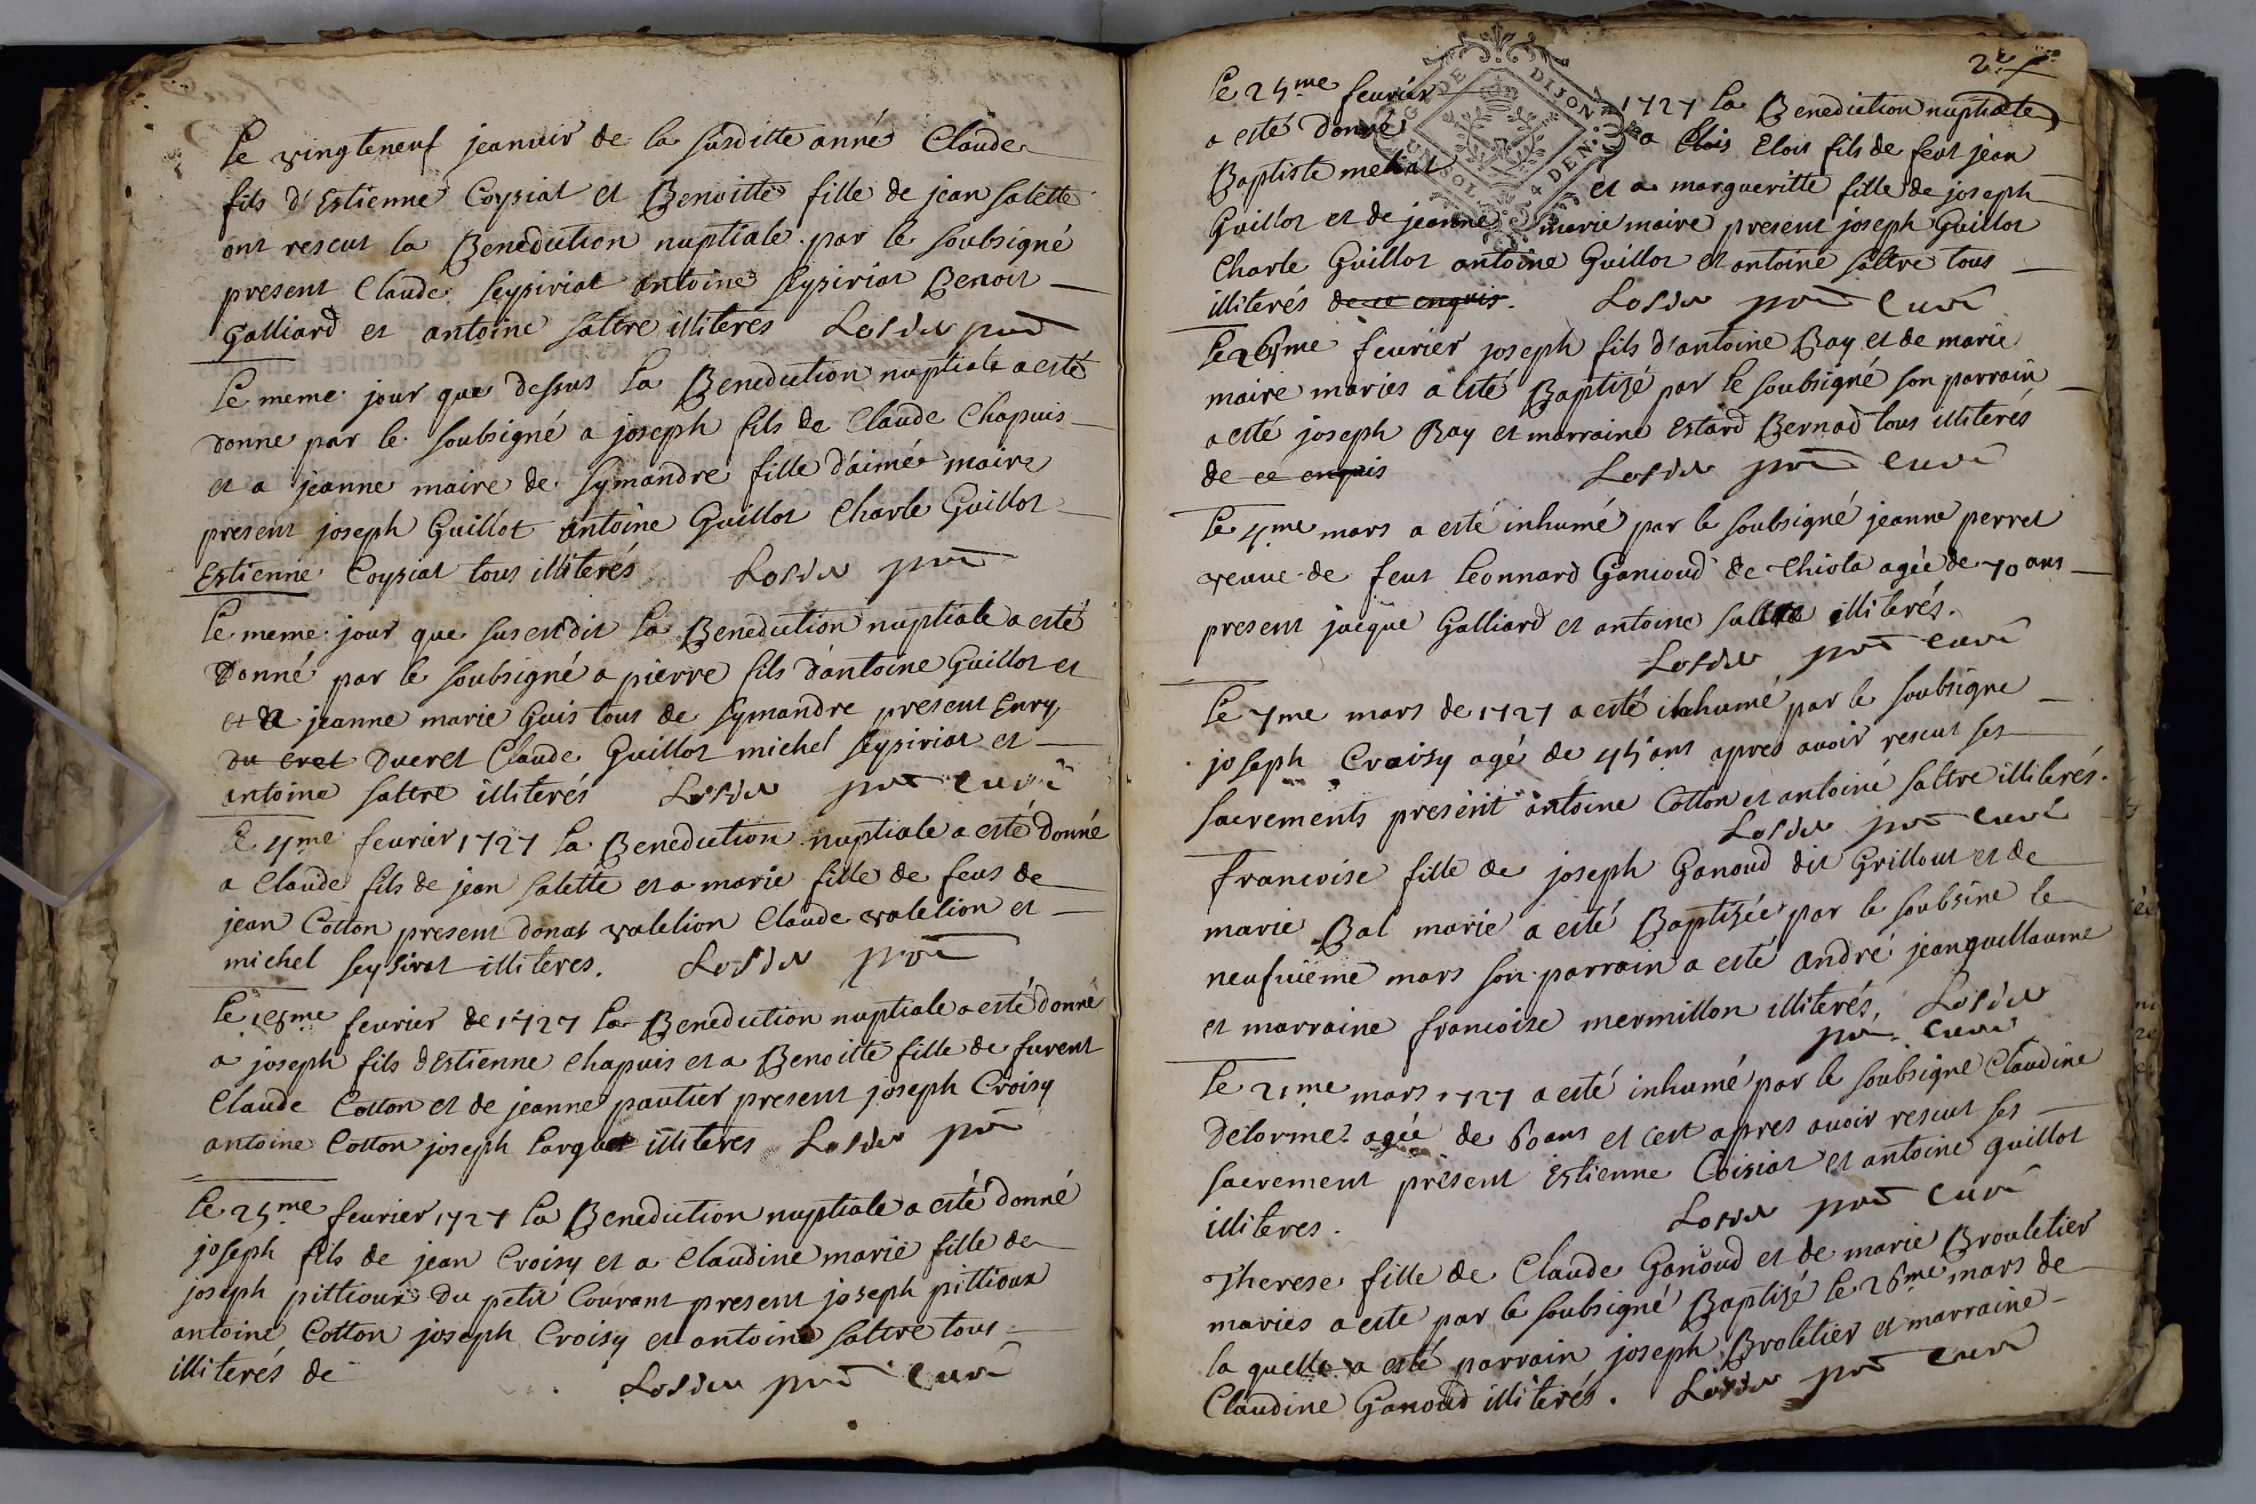 Le vingteneuf jeanvier de la susditte anné Claude
fils d'Estienne Coysiat et Benoitte fille de jean salette
ont rescut la Benediction nuptiale par le soubsigné
present Claude seysiriat antoine seysiriat Benoit
Galliard et antoine saltre illiterés
Le meme jour que dessus la Benediction nuptiale a esté
donne par le soubsigné a joseph fils de Claude Chapuis
et a jeanne maire de symandre fille d'aimé maire
present joseph Guillot antoine Guillot Charle Guillot
Estienne Coysiat tous illiterés
Le meme jour que susestdit la Benediction nuptiale a esté
donné par le soubsigné a pierre fils d'antoine Guillot et
et a jeanne marie Guis tous de symandre present Enry
du cret ducret Claude Guillot michel seysiriat et
antoine saltre illiterés curé
Le 4me feurier 1727 la Benediction nuptiale a esté donné
a Claude fils de jean salette et a marie fille de feus de
jean Cotton present donat valelion Claude valelion et
michel seysirat illiteres.
Le 18me feurier de 1727 la Benediction nuptiale a esté donné
a joseph fils d'Estienne Chapuis et a Benoitte fille de furent
Claude Cotton et de jeanne pautier present joseph Croisy
antoine Cotton joseph larguet illiteres
Le 25me feurier 1727 la Benediction nuptiale a esté donné
joseph fils de jean Croisy et a Claudine marie fille de
joseph pittioux du petit Courant present joseph pittioux
antoine Cotton joseph Croisy et antoine saltre tous
illiterés de curé
GN. DE DIJON
UN SOL. 4 DEN.
Le 25me feurier 1727 la Benediction nuptiale
a esté donné a Elois Elois fils de feut jean
Baptiste et a margueritte fille de joseph
Guillot et de jeanne marie maire present joseph Guillot
Charle Guillot antoine Guillot et antoine saltre tous
illiterés de ce enquis. curé
Le 26me feurier joseph fils d'antoine Ray et de marie
maire maries a esté Baptizé par le soubsigné son parrain
a esté joseph Ray et marraine Estard Bernad tous illiterés
de ce enquis curé
Le 4me mars a esté inhumé par le soubsigné jeanne perret
veuue de feut Leonnard Ganioud de Chiola agée de 70 ans
present jacque Galliard et antoine saltre illiterés.
curé
Le 7me mars de 1727 a esté inhumé par le soubsigne
joseph Croisy agé de 45 ans apres auoir rescut ses
sacrements present antoine Cotton et antoine saltre illiterés.
curé
francoise fille de joseph Ganoud dit Grillout et de
marie Bal marie a esté Baptizée par le soubsine le
neufuieme mars son parrain a esté andré jeanguillaume
et marraine francoise mermillon illiterés,
curé
Le 21me mars 1727 a esté inhumé par le soubsigne Claudine
Delorme agée de 60 ans et cest apres auoir rescut ses
sacrement present Estienne Coisiat et antoine guillot
illiteres. curé
Therese fille de Claude Ganoud et de marie Brouletier
maries a este par le soubsigné Baptizé le 26me mars de
la quelle a esté parrain joseph Broletier et marraine
Claudine Ganoud illiterés. curé